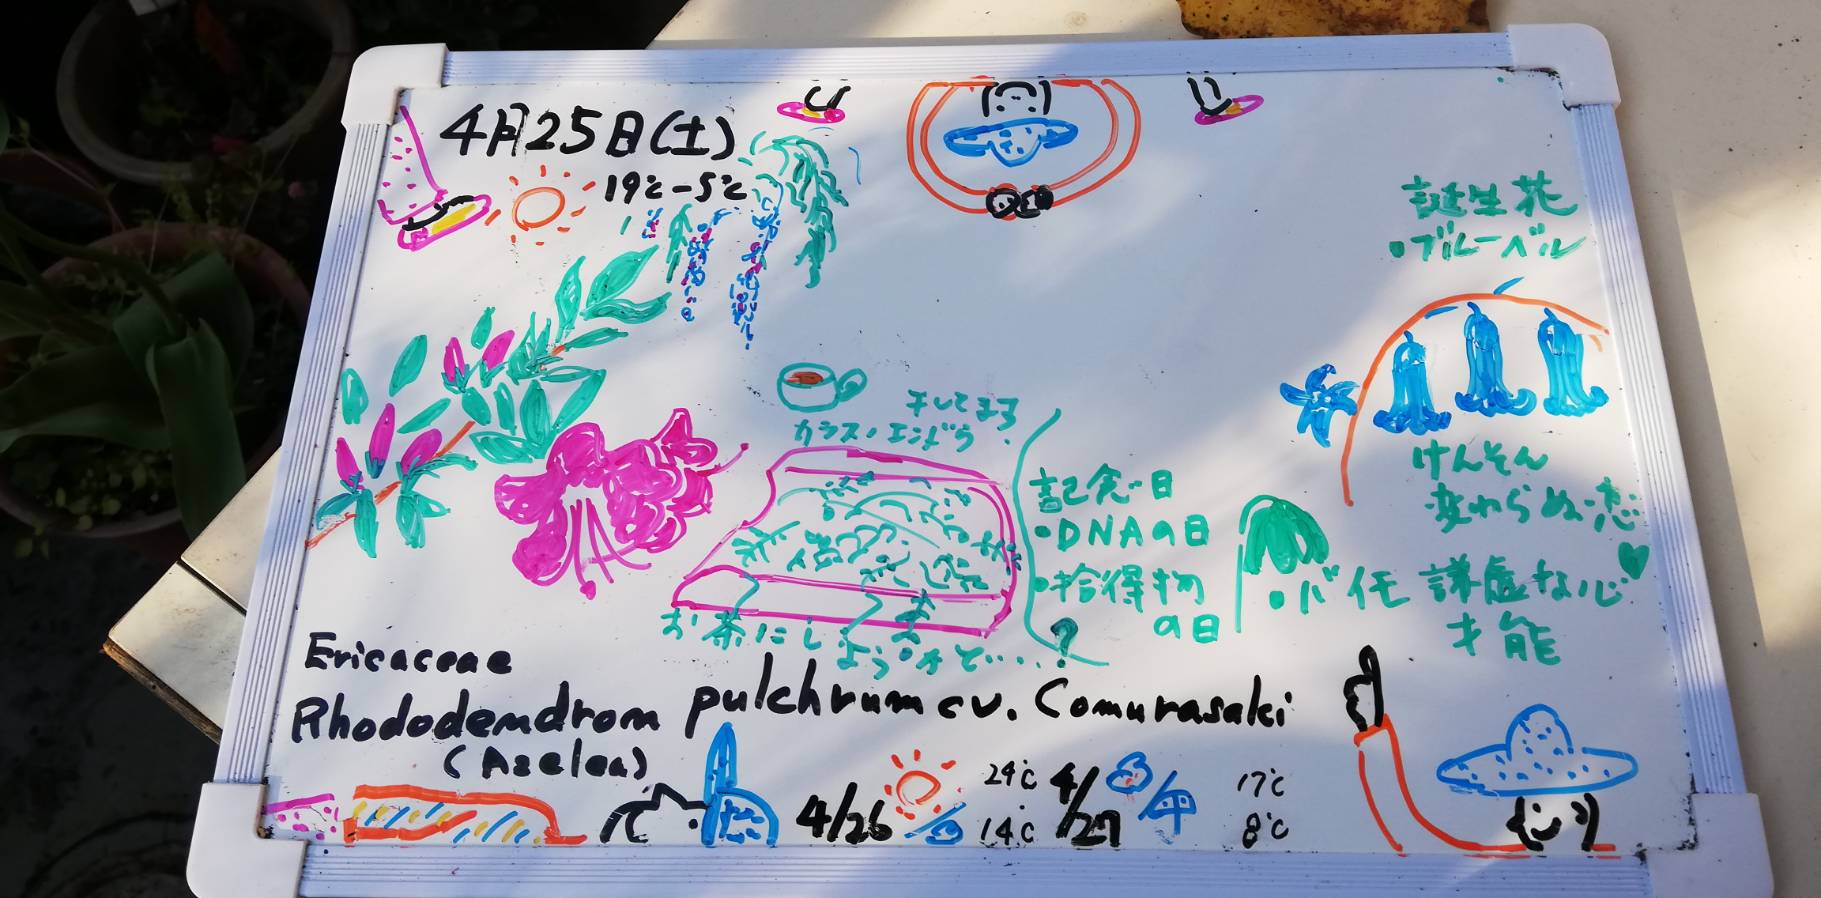 4月25日(土)
19℃-5℃
誕生花
・ブルーベル
けんそん
変わらぬ恋
干してます
カラスノエンドウ
お茶にしようかと....?
記念日
・DNAの日
・拾得物
の日
・バイモ 謙虚な心
才能
Ericaceae
Rhododendrom pulchrum cv. Comurasaki
(Azelea)
4/26 24℃ 14℃ 4/27 雨 17℃ 8℃